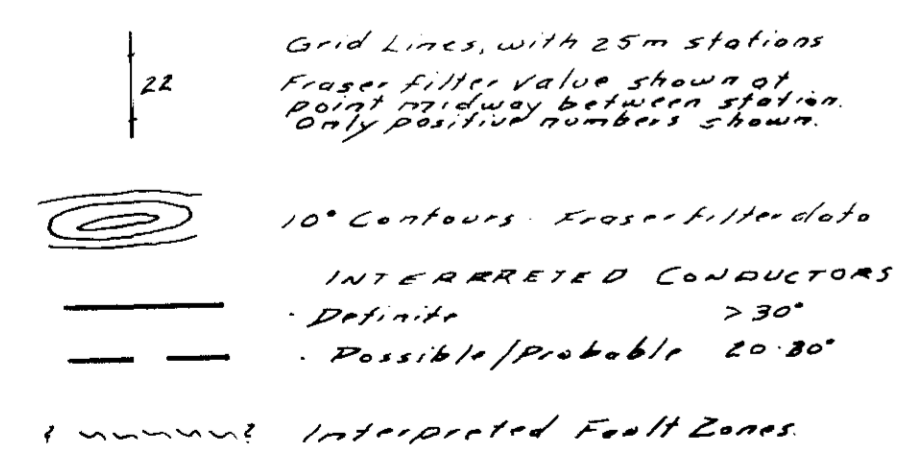 Grid Lines, with 25m stations
22
Fraser filter value shown at
point midway between station.
Only positive numbers shown.
10° Contours. Fraser filter data
INTERPRETED CONDUCTORS
. Definite >30°
. Possible/Probable 20-30°
? ? Interpreted Fault Zones.